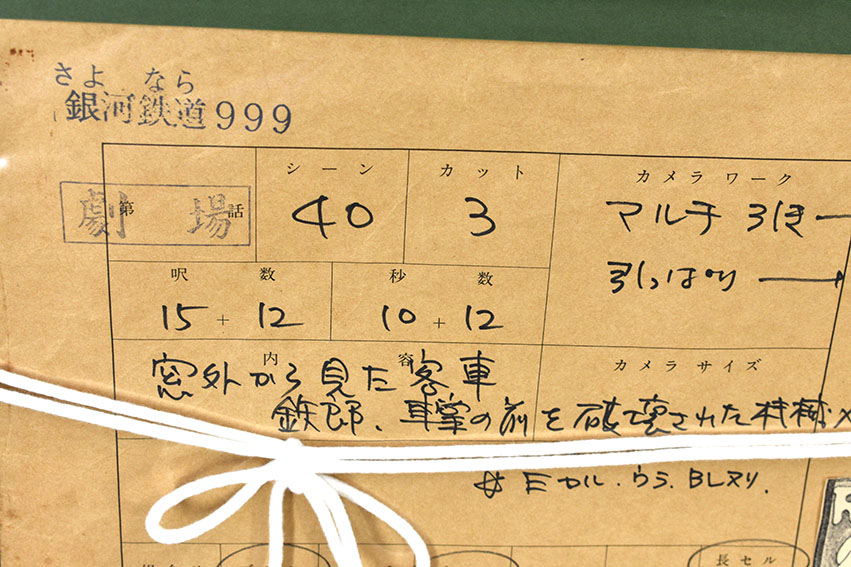 さよ なら
銀河鉄道999
第 話
劇 場
シーン
40
カット
3
カメラワーク
マルチ 引き
引っぱり
呎 数
15 + 12
秒 数
10 + 12
内 容
窓外から見た客車
鉄郎、車掌の前を破壊された
カメラサイズ
セル・ウラ. BLヌリ.
長セル